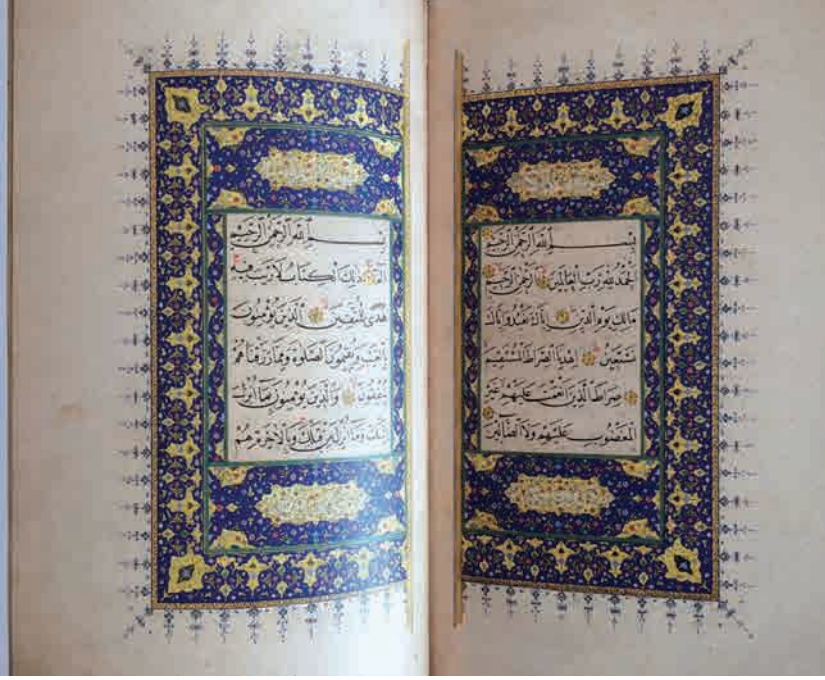 بسم الله الرحمن الرحيم
الحمد لله رب العالمين الرحمن الرحيم
مالك يوم الدين اياك نعبد واياك
نستعين اهدنا الصراط المستقيم
صراط الذين انعمت عليهم غير
المغضوب عليهم ولا الضالين
بسم الله الرحمن الرحيم
الم ذلك الكتاب لا ريب فيه
هدى للمتقين الذين يؤمنون
بالغيب ويقيمون الصلوة ومما رزقناهم
ينفقون والذين يؤمنون بما انزل
اليك وما انزل من قبلك وبالاخرة هم